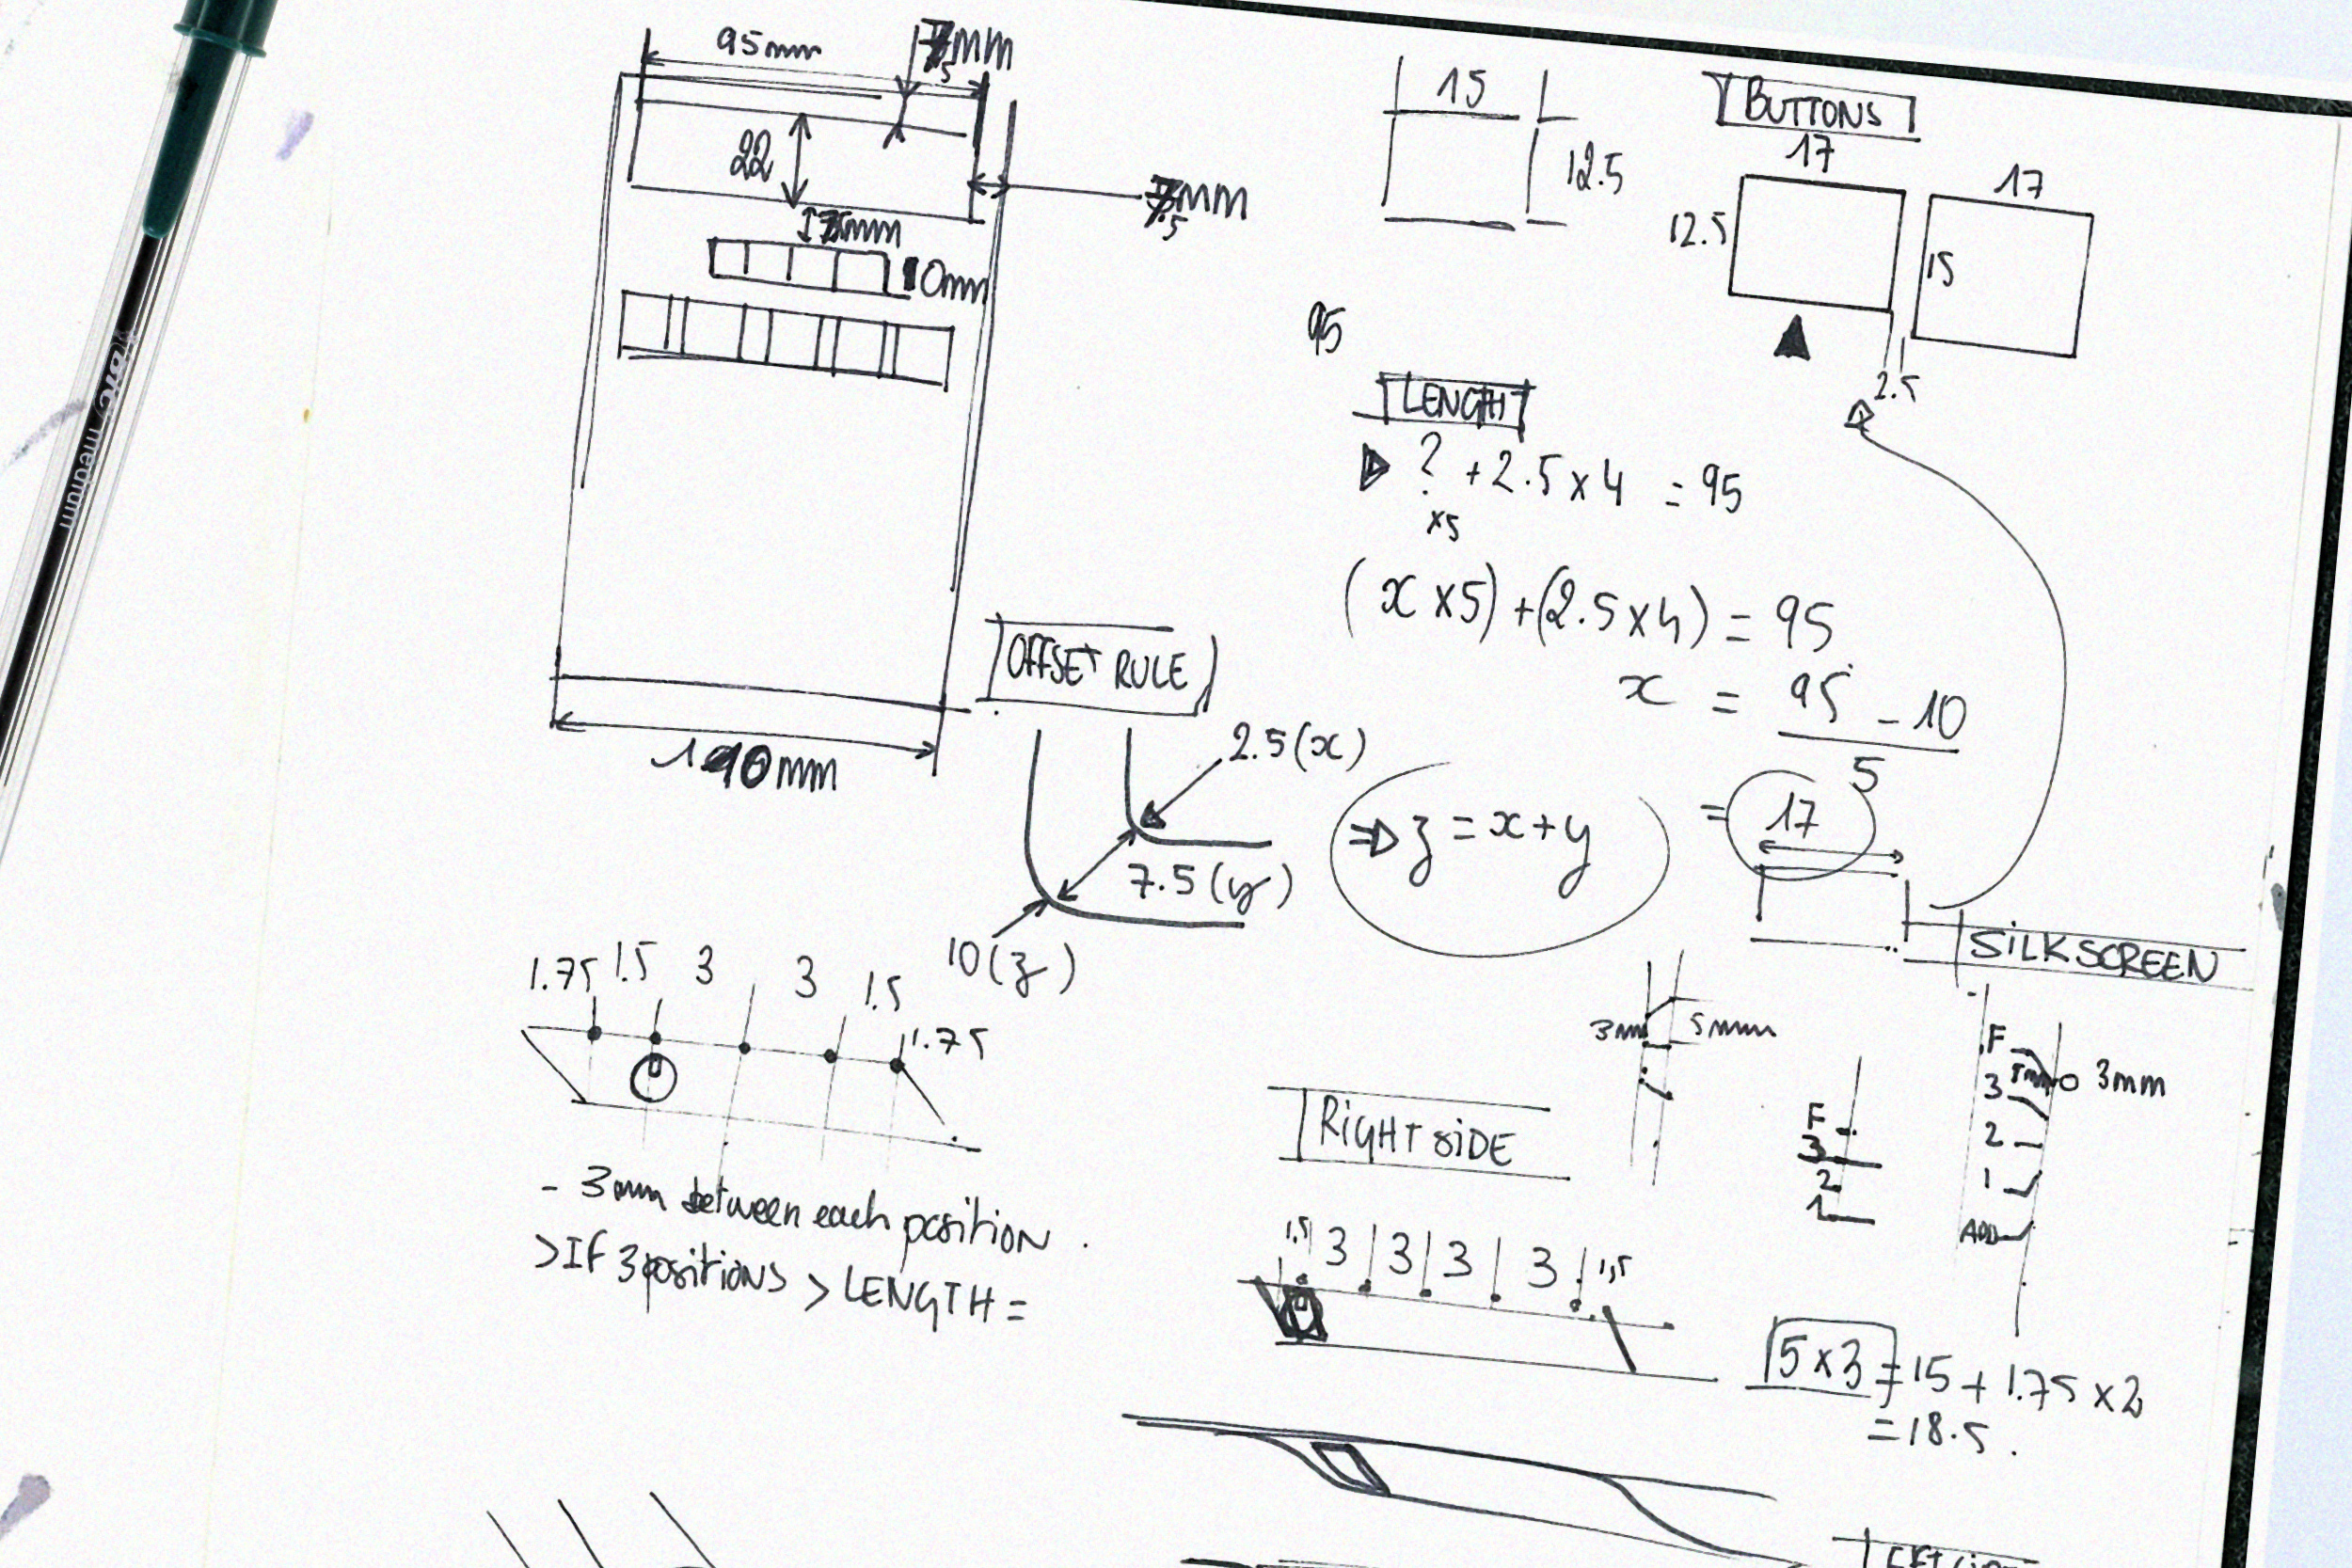 95mm
22
10mm
BiC medium
15
12.5
BUTTONS
17
17
12.5
15
2.5
95
LENGHT
? + 2.5 x 4 = 95
x5
(x x5) + (2.5 x 4) = 95
x = 95 - 10
5
= 17
OFFSET RULE
2.5 (x)
7.5 (y)
10 (z)
⇒ z = x + y
SILKSCREEN
3mm 5mm
F
3
2
1
F
3
2
1
ADD
3mm
1.75 1.5 3 3 1.5
1.75
- 3mm between each position.
> If 3 positions > LENGTH =
RIGHT SIDE
1.5 3 3 3 3 1,5
5 x 3 = 15 + 1.75 x 2
= 18.5.